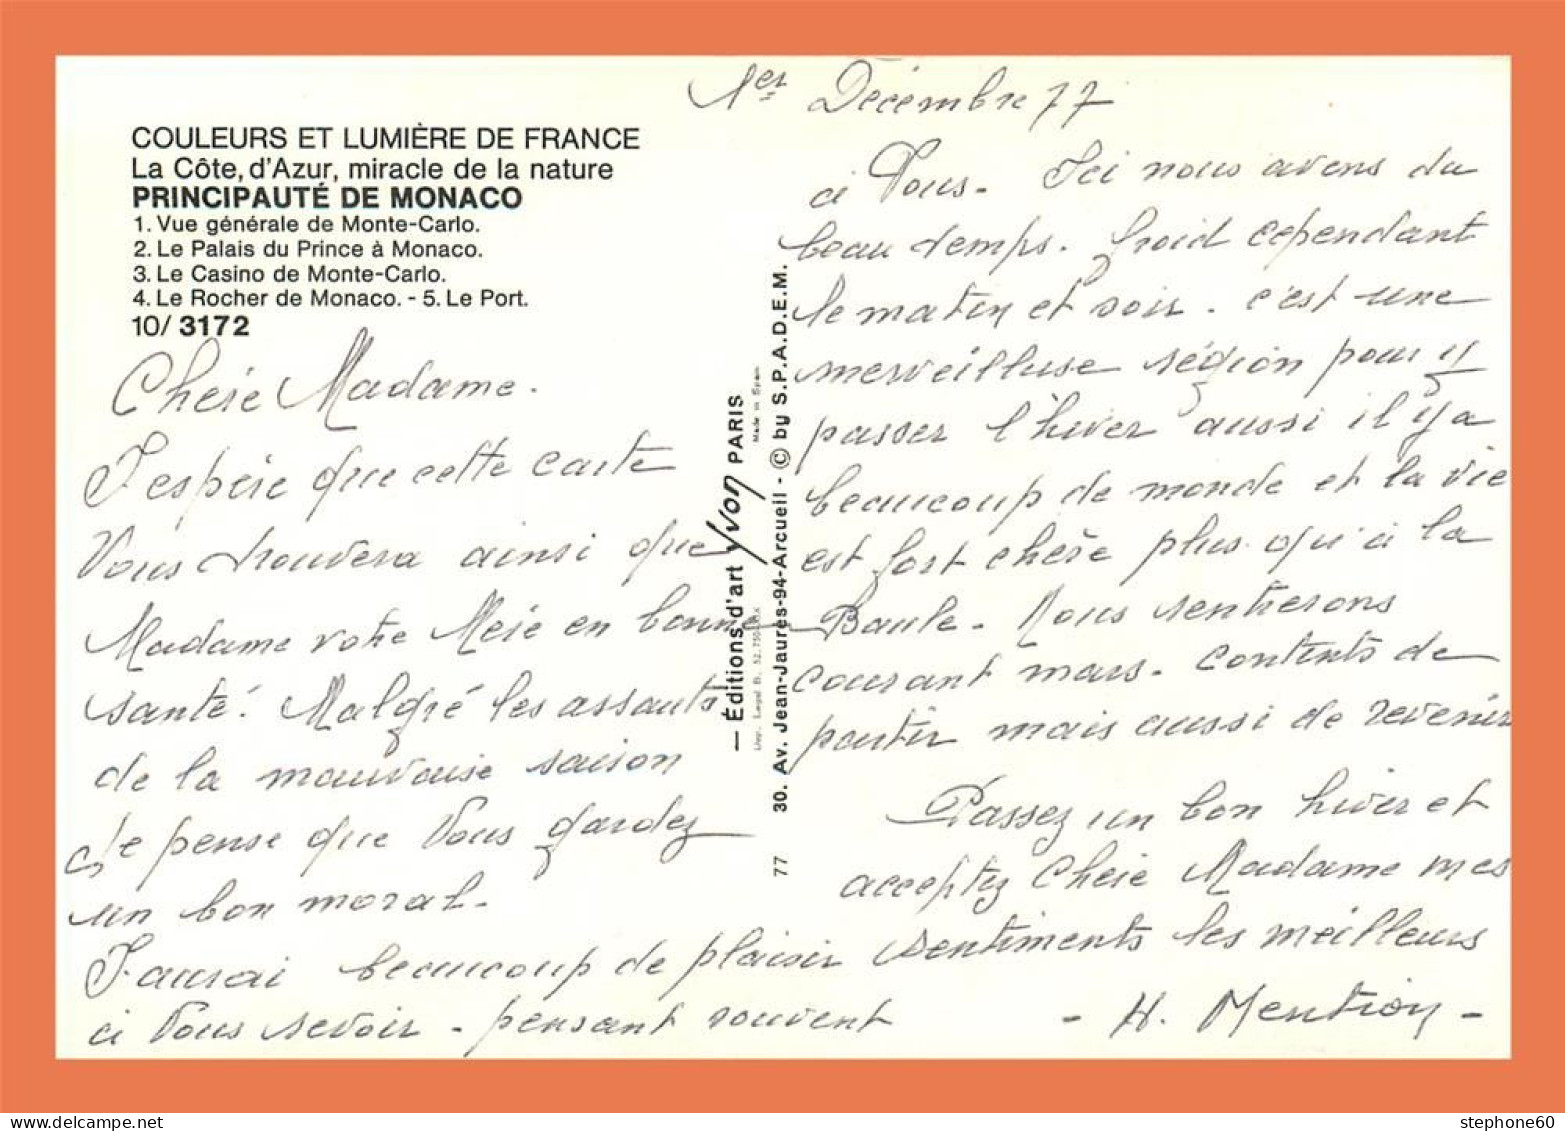 1er Décembre 77
COULEURS ET LUMIÈRE DE FRANCE
La Côte, d'Azur, miracle de la nature
PRINCIPAUTÉ DE MONACO
1. Vue générale de Monte-Carlo.
2. Le Palais du Prince à Monaco.
3. Le Casino de Monte-Carlo.
4. Le Rocher de Monaco. - 5. Le Port.
10/ 3172
Chère Madame.
J'espère que cette carte
Vous trouvera ainsi que
Madame votre Mère en bonne
santé. Malgré les assauts
de la mauvaise saison
Je pense que Vous gardez
un bon moral.
J'aurai beaucoup de plaisir
à Vous revoir - pensant souvent
— Éditions d'art Yvon PARIS
Made in Spain
30. Av. Jean-Jaurès-94-Arcueil - © by S.P.A.D.E.M.
77
à Vous. Ici nous avons du
beau temps. froid cependant
le matin et soir. c'est une
merveilluse région pour y
passer l'hiver aussi il y a
beaucoup de monde et la vie
est fort chère plus qu'à la
Baule. Nous rentrerons
courant mars. contents de
partir mais aussi de revenir
Passez un bon hiver et
acceptez Chère Madame mes
sentiments les meilleurs
- H. Mention -
stephone60